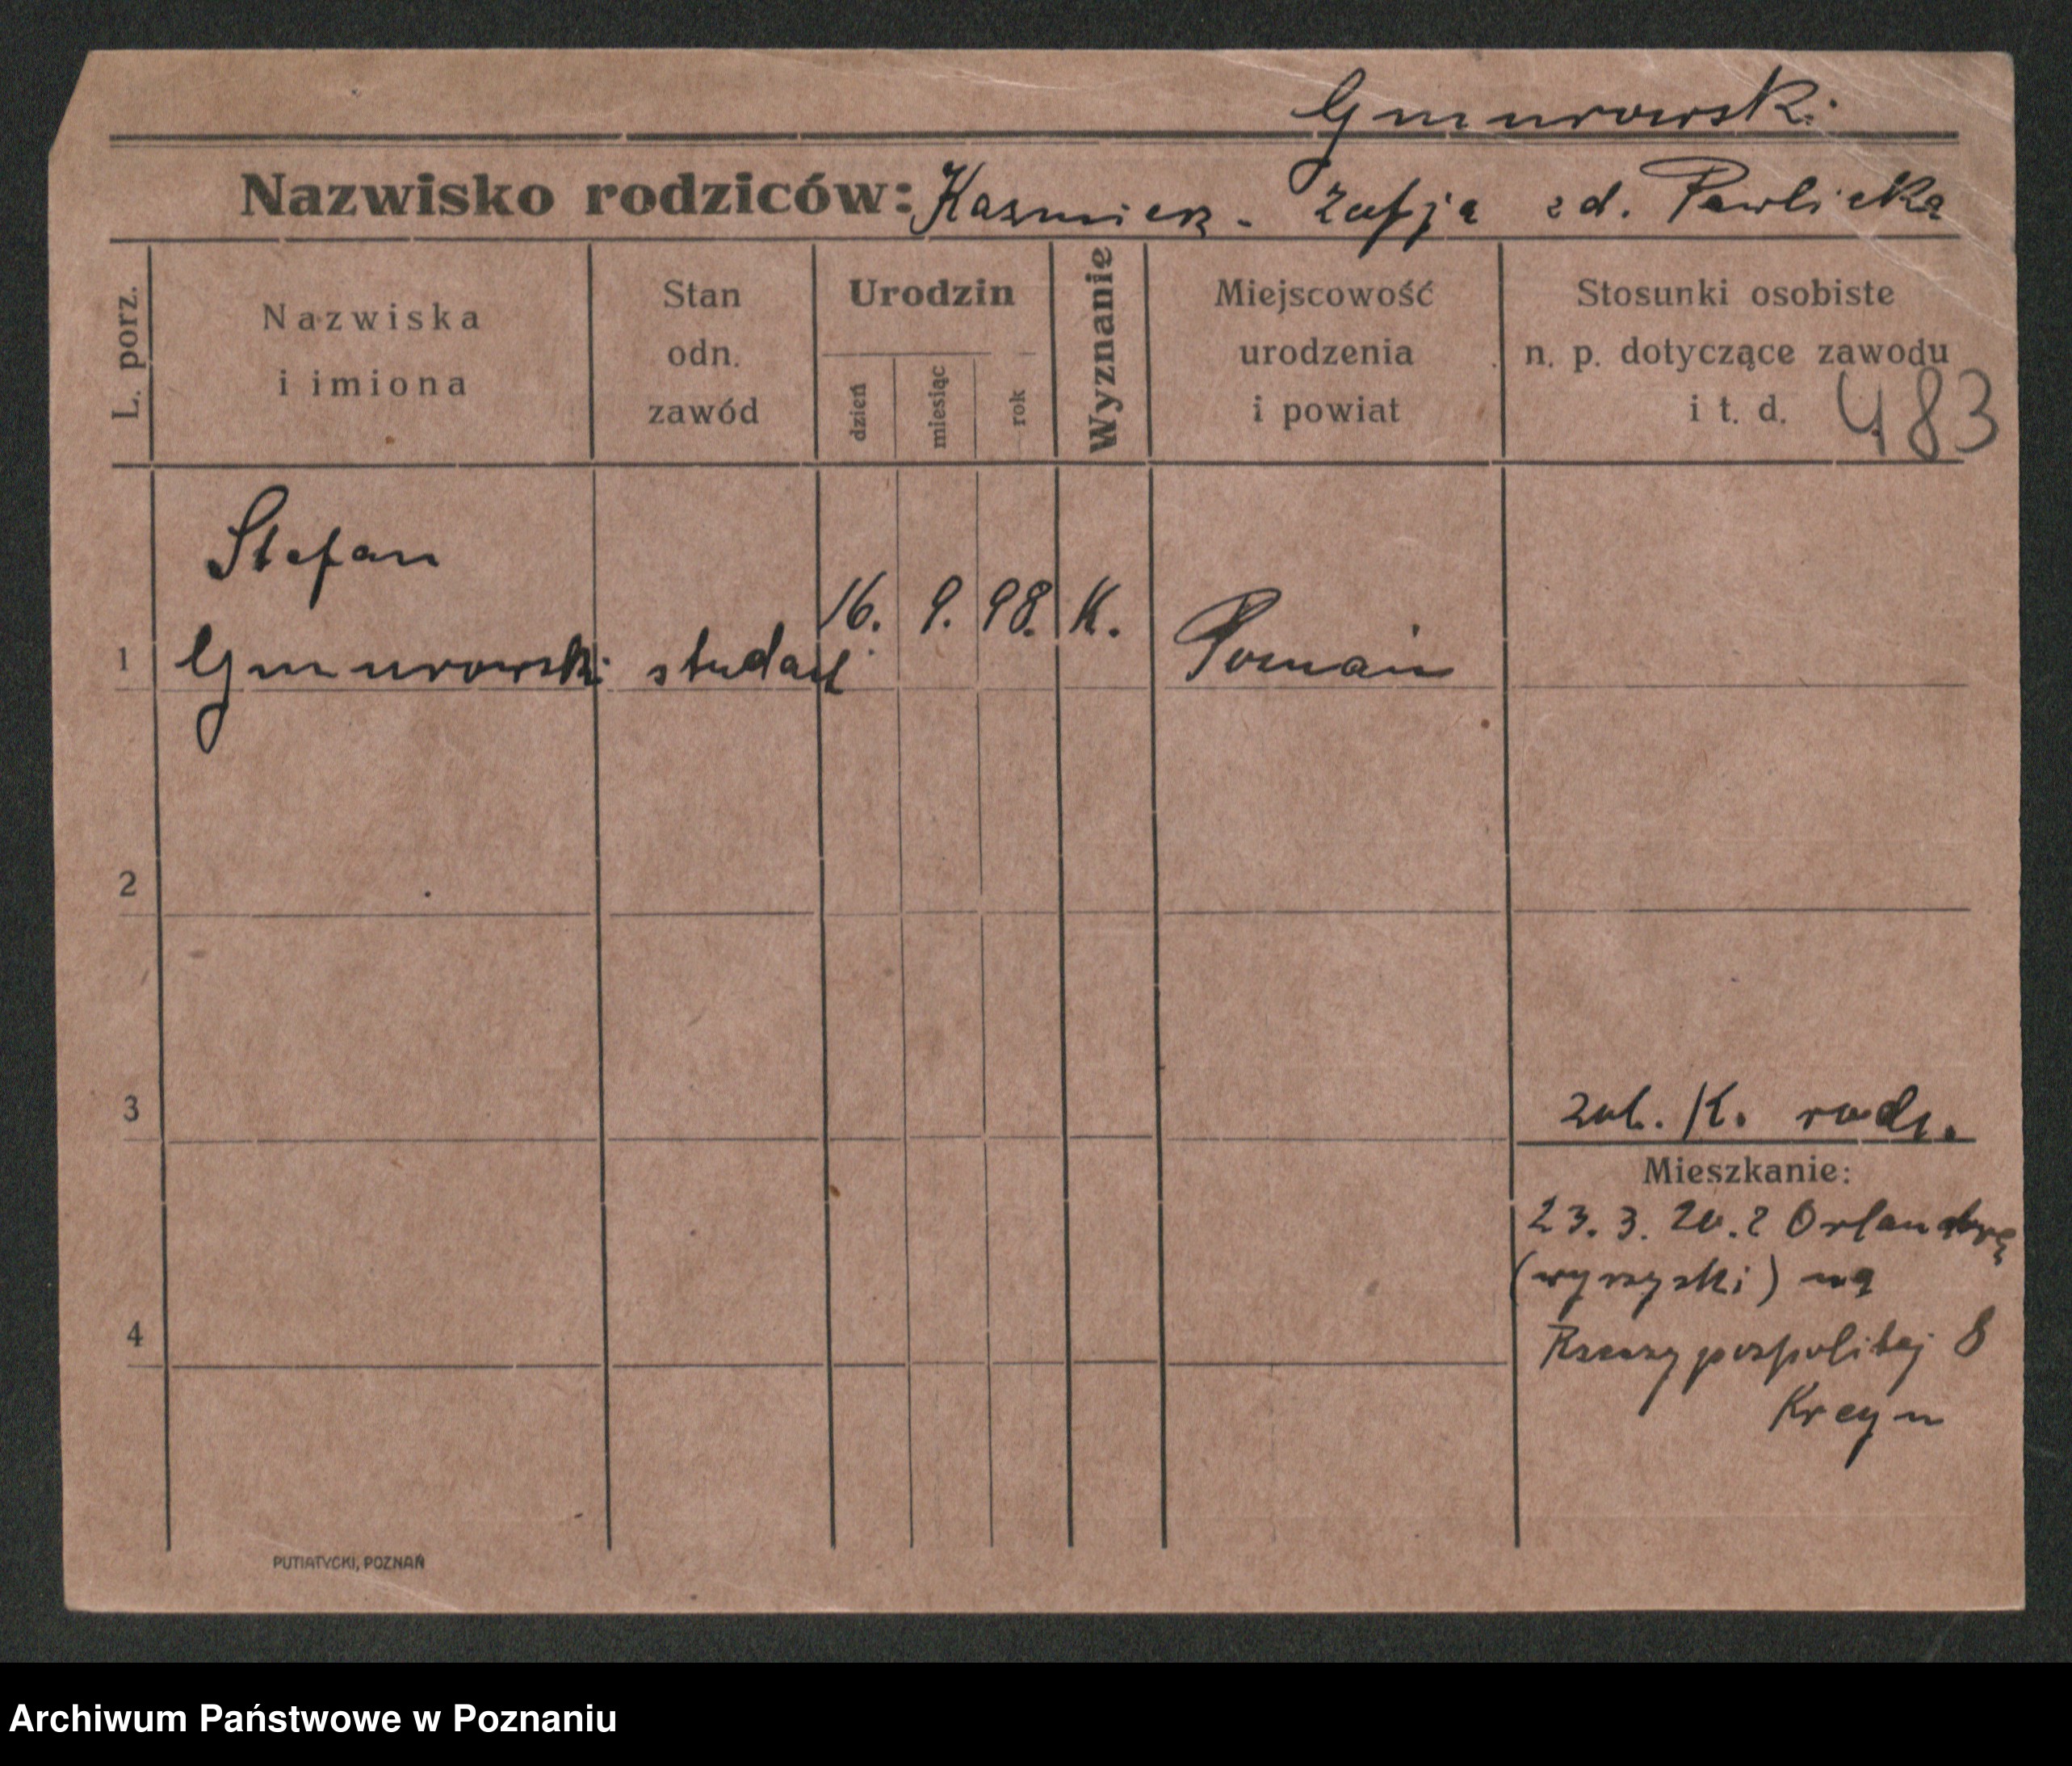 Gmurowski
Nazwisko rodziców: Kazmierz - Zofja zd. Pawlicka
L. porz.
Nazwiska
i imiona
Stan
odn.
zawód
Urodzin
dzień
miesiąc
rok
Wyznanie
Miejscowość
urodzenia
i powiat
Stosunki osobiste
n. p. dotyczące zawodu
i t. d.
483
Stefan
1 Gmurowski student 16. 9. 98. K. Poznań
2
3
K. rodz.
Mieszkanie:
23. 3. 20. z
(wyrzyski) na
Rzeczypospolitej 8
4
PUTIATYCKI, POZNAŃ
Archiwum Państwowe w Poznaniu